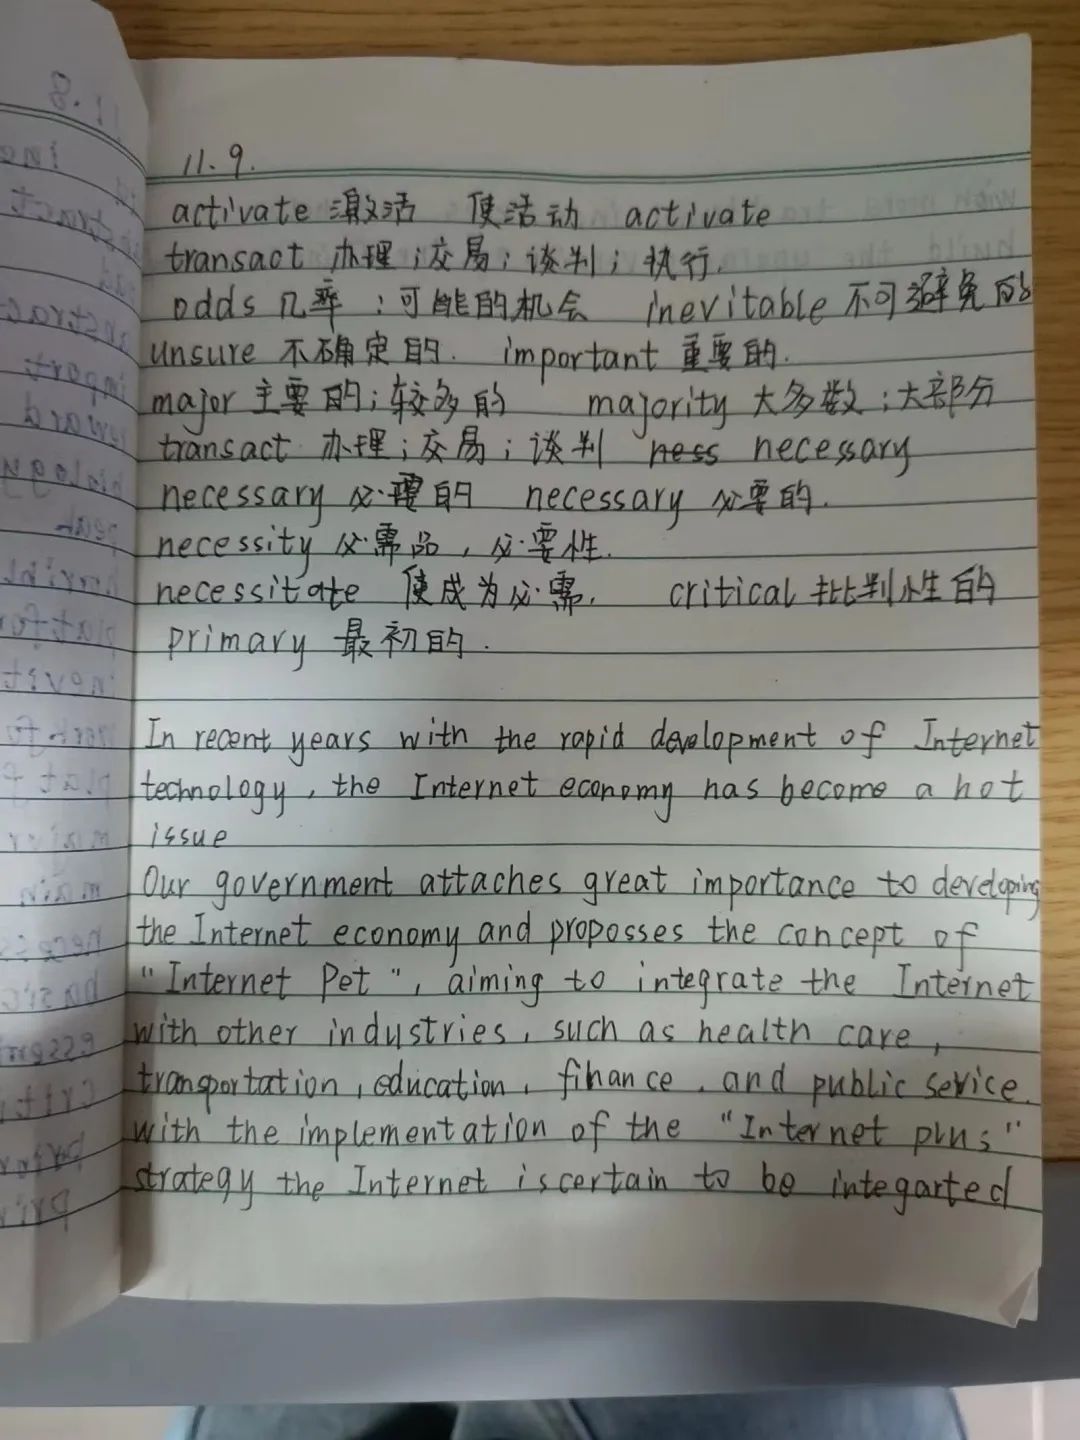 11.9.
activate 激活 使活动 activate
transact 办理；交易；谈判；执行.
odds 几率；可能的机会 inevitable 不可避免的
unsure 不确定的. important 重要的.
major 主要的；较多的 majority 大多数；大部分
transact 办理；交易；谈判 ness necessary
necessary 必要的 necessary 必要的.
necessity 必需品，必要性.
necessitate 使成为必需. critical 批判性的
primary 最初的.
In recent years with the rapid development of Internet
technology, the Internet economy has become a hot
issue
Our government attaches great importance to developing
the Internet economy and proposses the concept of
"Internet Pet", aiming to integrate the Internet
with other industries, such as health care,
transportation, education, finance, and public sevice.
with the implementation of the "Internet plus"
strategy the Internet is certain to be integarted